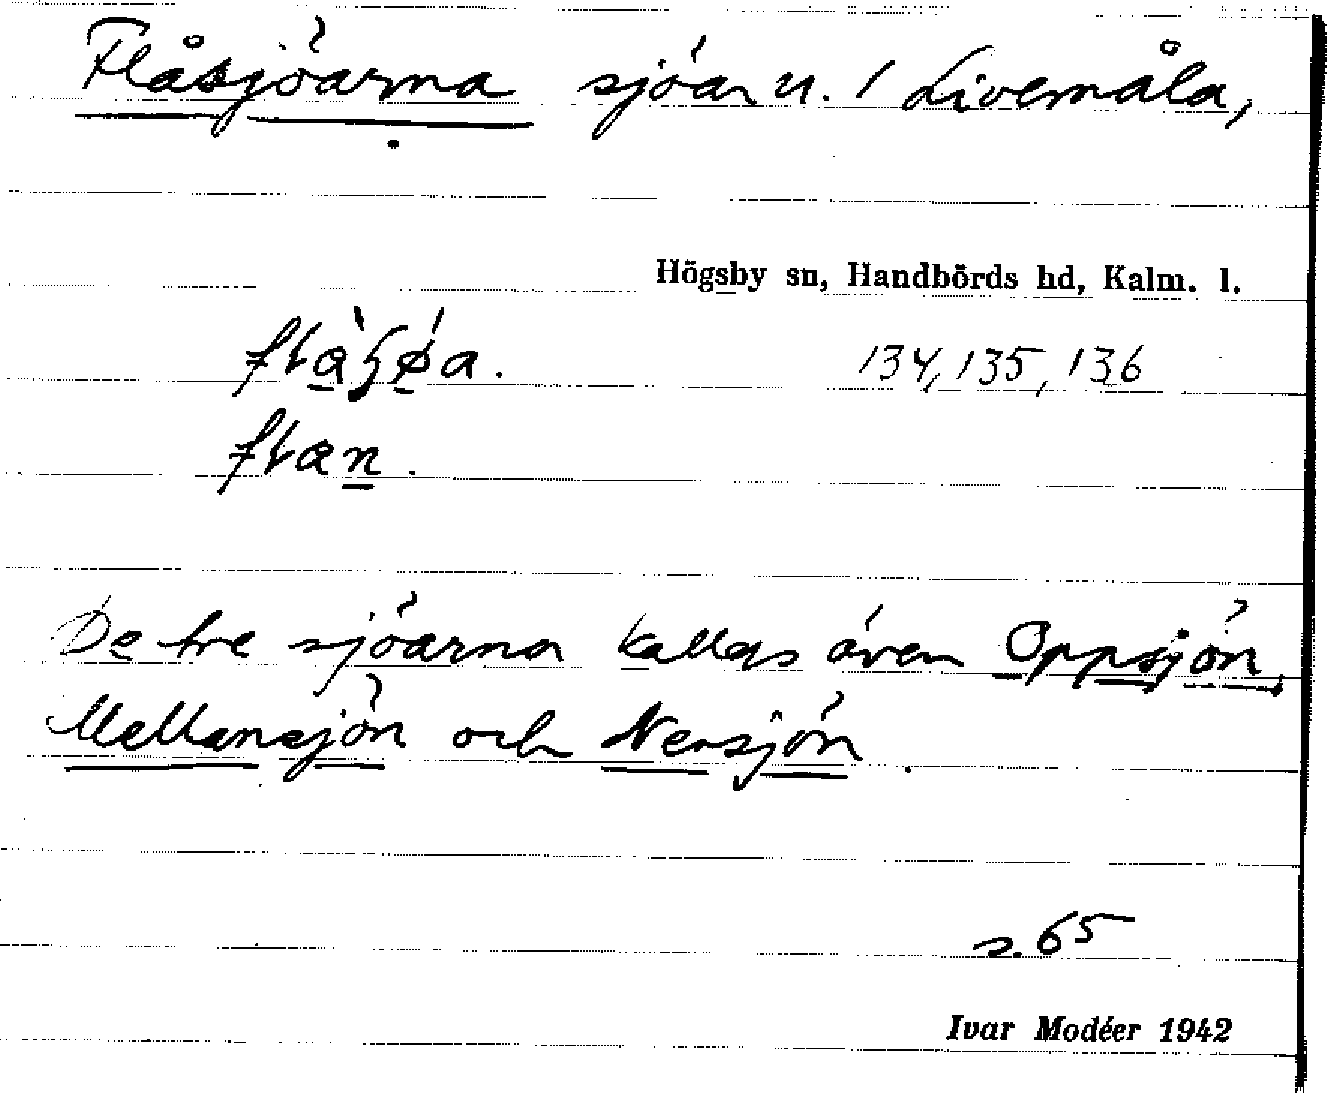 Flåsjöarna sjöar u. 1 Livemåla,
Högsby sn, Handbörds hd, Kalm. l.
134, 135, 136
De tre sjöarna kallas även Oppsjön,
Mellansjön och Nersjön.
s. 65
Ivar Modéer 1942